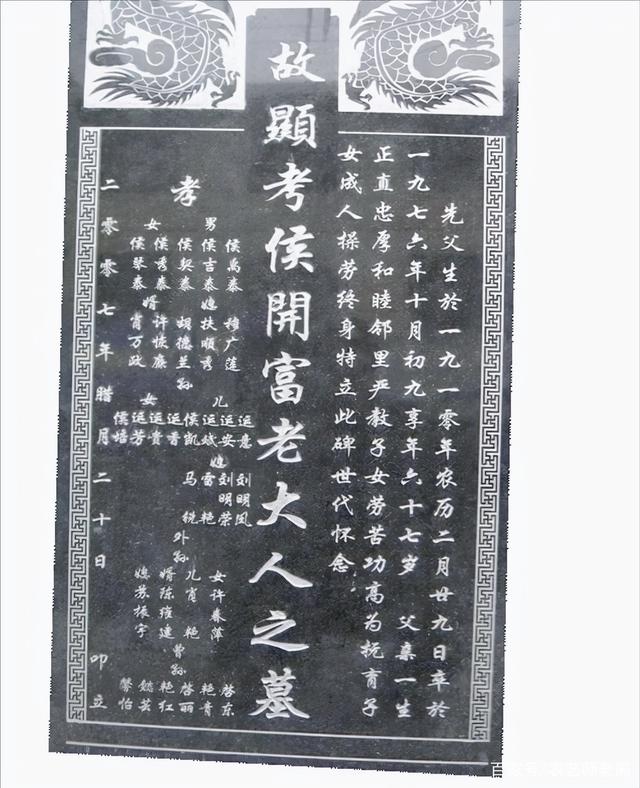 先父生於一九一零年农历二月廿九日卒於
一九七六年十月初九享年六十七岁 父亲一生
正直忠厚和睦邻里严教子女劳苦功高为抚育子
女成人操劳终身特立此碑世代怀念
故顯考侯開富老大人之墓
孝
男
侯禹泰
侯吉泰
侯契泰
媳
穆广莲
扶順秀
胡德兰
女
侯秀泰
侯琴泰
婿
许恢廉
肖万政
孙
儿
运意
运安
运斌
侯凯
女
运香
运贵
运芳
侯培
媳
刘明凤
刘明荣
雷艳
马锐
外孙
女许春萍
儿肖艳
婿陈维建
媳苏振宇
曾孙
啓东
艳青
啓丽
艳红
馨怡
二零零七年腊月二十日 叩立
百家号